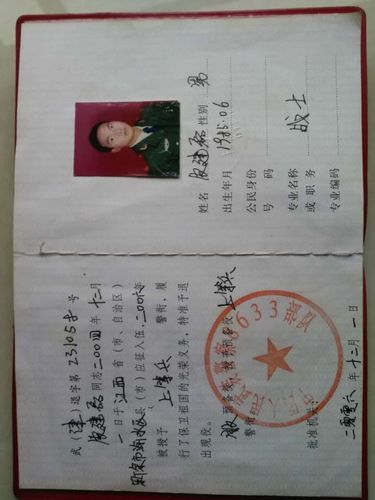 姓名 建磊 性别 男
出生年月 1985.06
公民身份
号 码
专业名称
或 职 务 战士
专业编码
武（）退字第231058号
建磊同志二00四年十二月
一日于江西省（市、自治区）
县（市）应征入伍,二00六年
被授予 上等兵 警衔，履
行了保卫祖国的光荣义务，特准予退
出现役。
服预备役 上等兵
警衔
批准机关
二零零六年十二月一日
8633部队